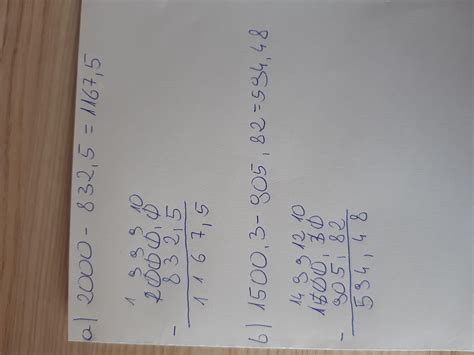 a) 2000 - 832,5 = 1167,5
1 9 9 9 10
2000,0
- 832,5
1167,5
b) 1500,3 - 905,82 = 594,48
14 9 9 12 10
1500,30
- 905,82
594,48